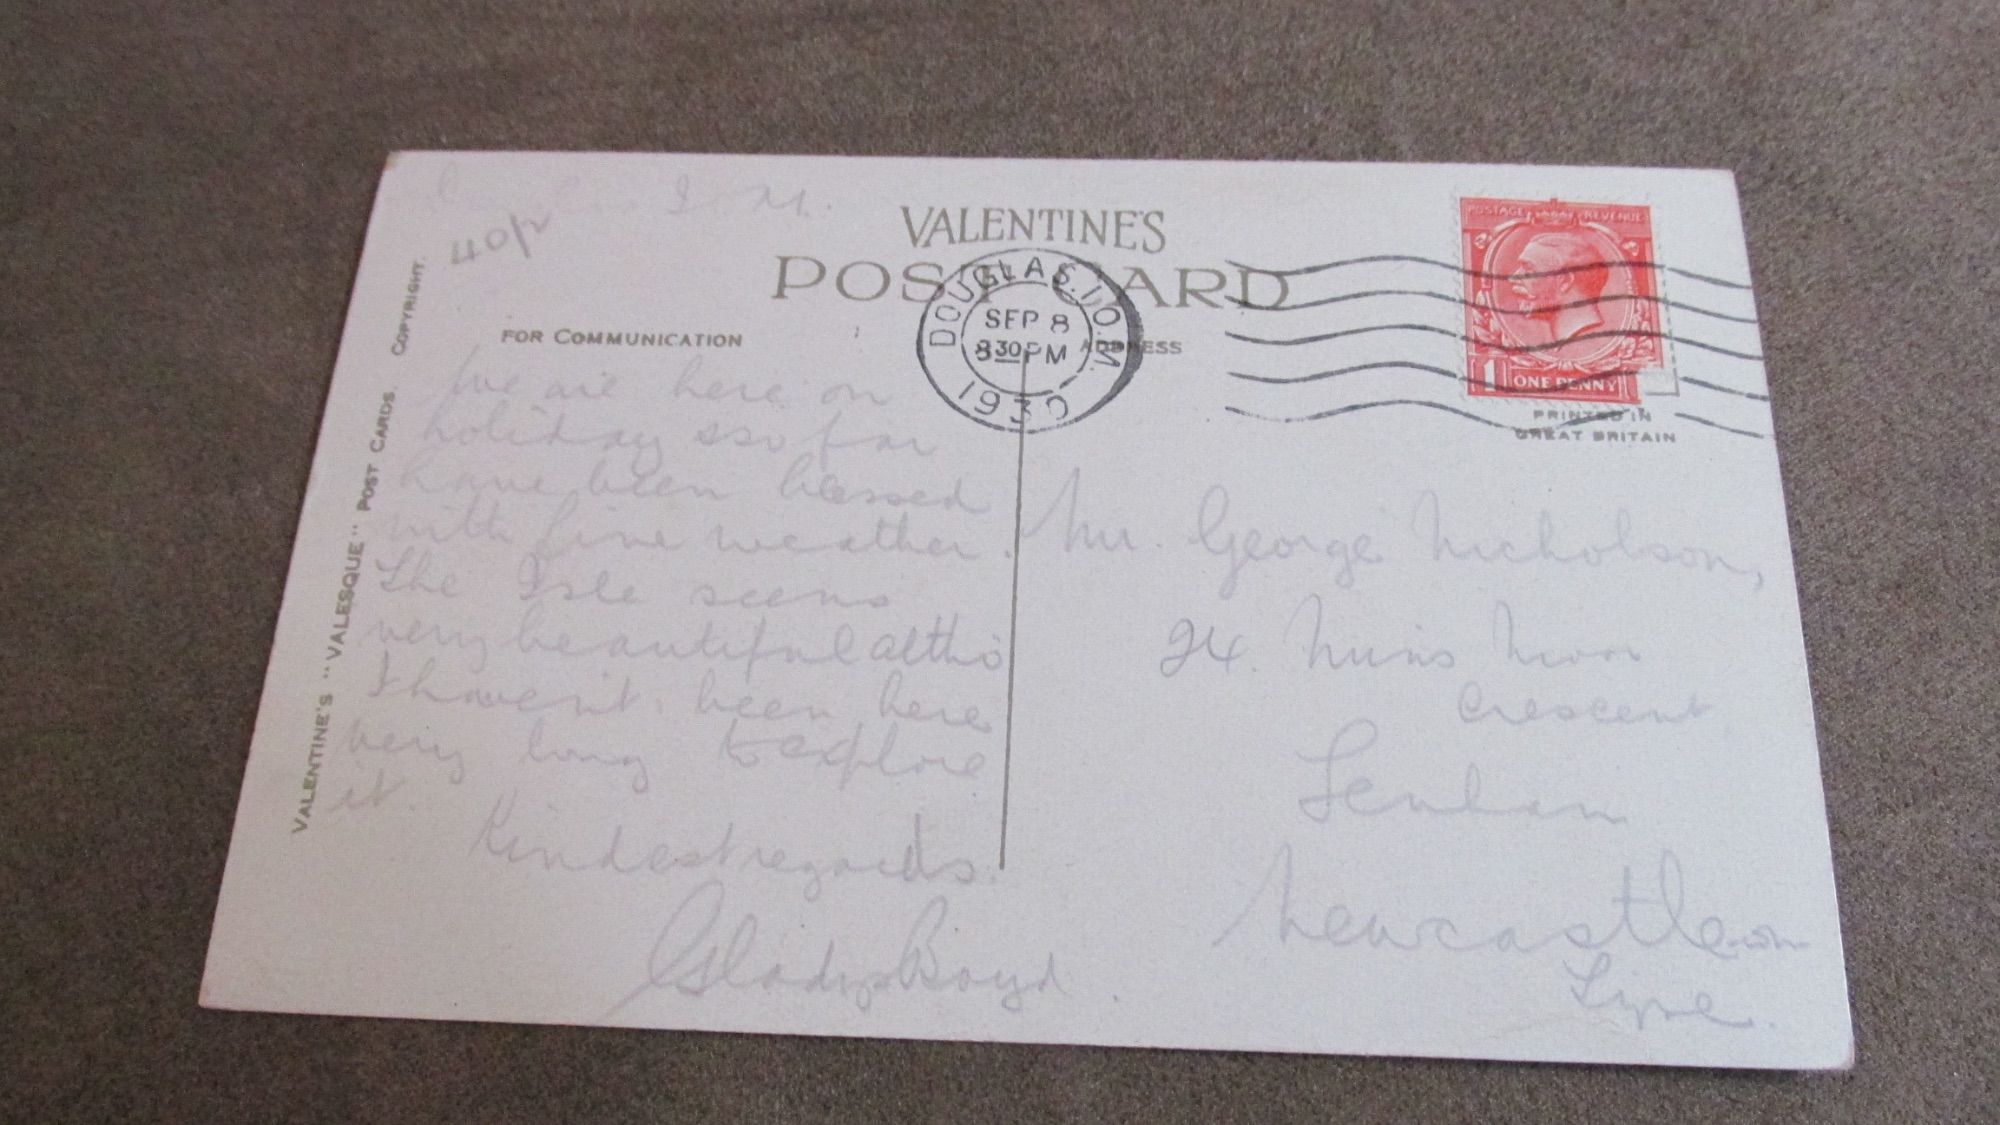 I. M.
40/2
VALENTINE'S
POST CARD
FOR COMMUNICATION
ADDRESS
DOUGLAS. I.O.M.
SEP 8
8 30 PM
1930
POSTAGE REVENUE
1 ONE PENNY
PRINTED IN
GREAT BRITAIN
VALENTINE'S "VALESQUE" POST CARDS. COPYRIGHT.
We are here on
holiday & so far
have been blessed
with fine weather.
The Isle seems
very beautiful altho
I haven't been here
very long to explore
it.
Kindest regards.
Gladys Boyd.
Mr. George Nicholson,
24. Nuns Moor
Crescent
Fenham
Newcastle-on-
Tyne.